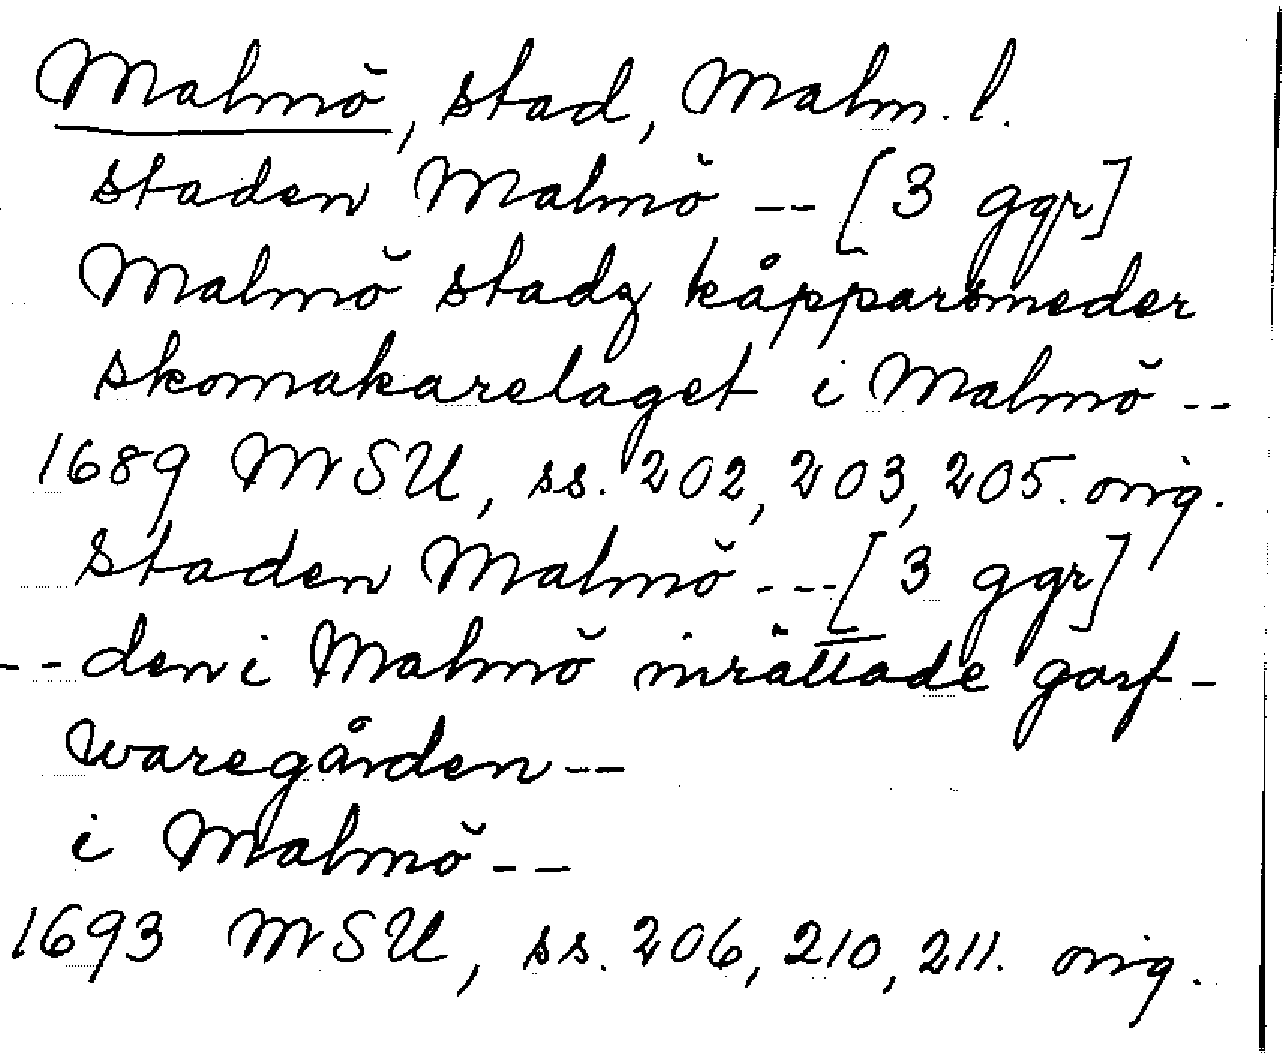 Malmö, stad, Malm. l.
staden Malmö -- [3 ggr]
Malmö stadz kåpparsmeder
skomakarelaget i Malmö --
1689 MSU, ss. 202, 203, 205. orig.
Staden Malmö --- [3 ggr]
-- den i Malmö inrättade garf-
waregården --
i Malmö --
1693 MSU, ss. 206, 210, 211. orig.